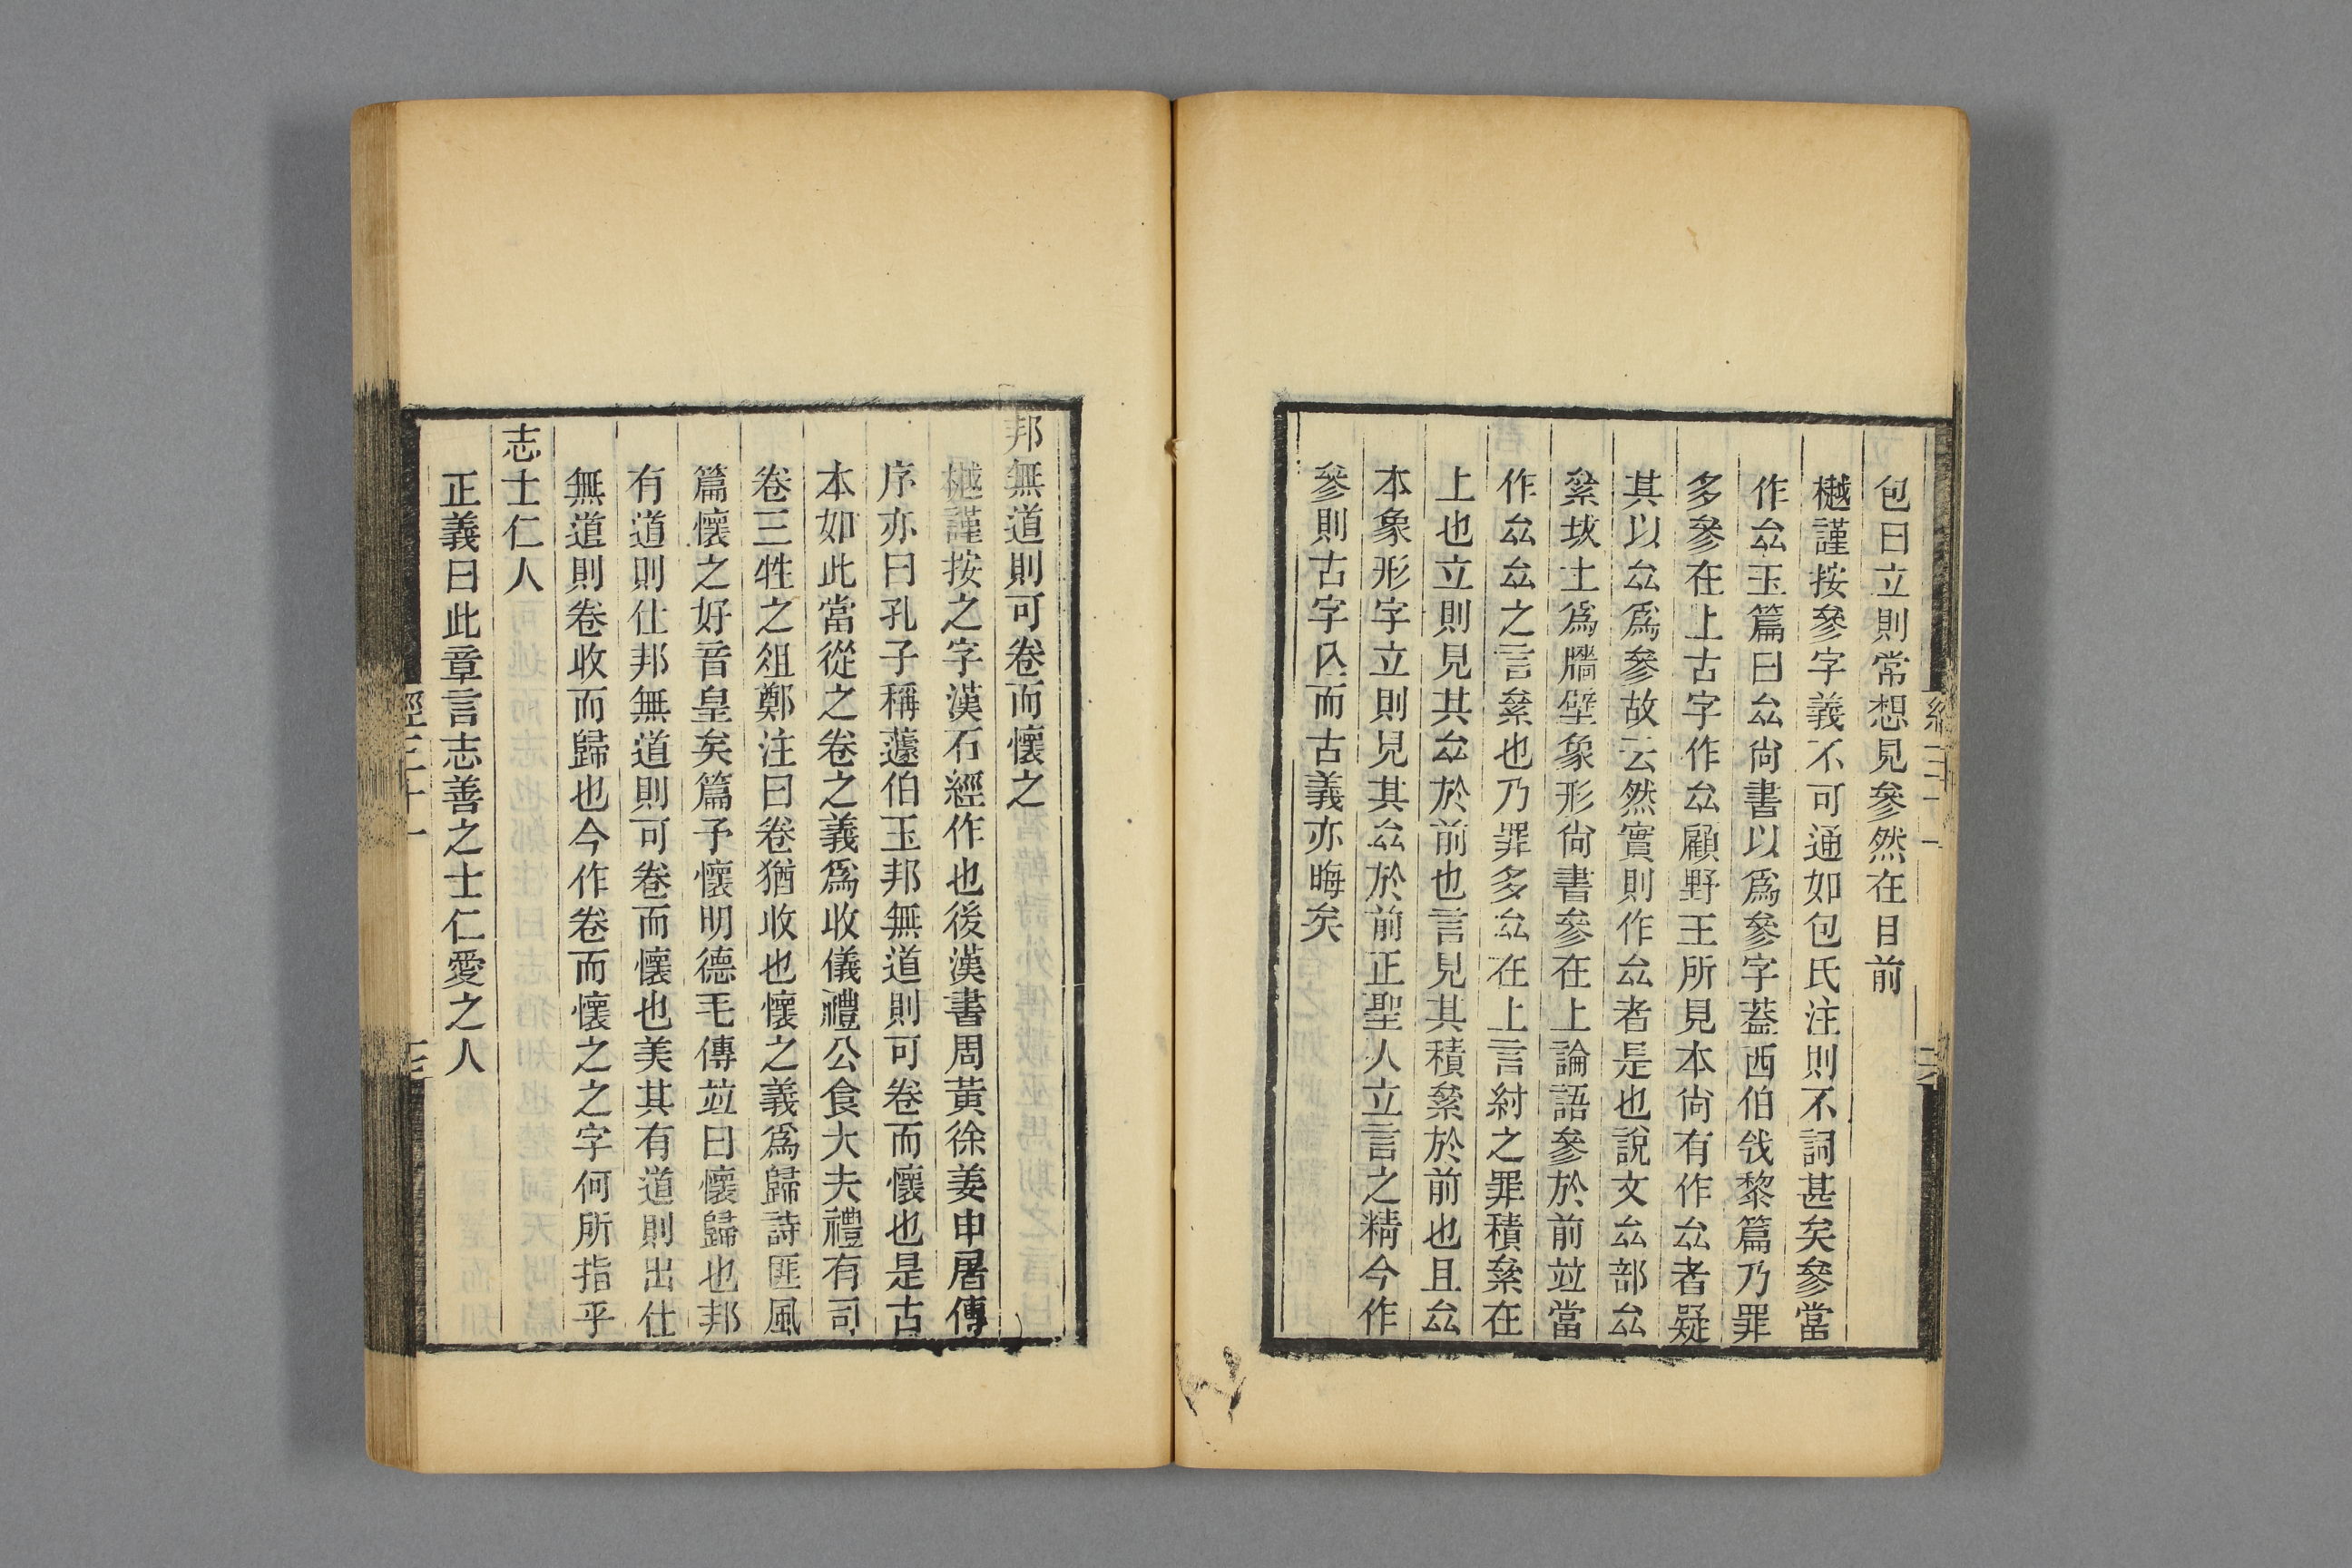 包曰立則常想見參然在目前
樾謹按參字義不可通如包氏注則不詞甚矣參當
作厽玉篇曰厽尙書以爲參字葢西伯戗黎篇乃罪
多參在上古字作厽顧野王所見本尙有作厽者疑
其以厽爲參故云然實則作厽者是也說文厽部厽
絫坺土爲牆壁象形尙書參在上論語參於前竝當
作厽厽之言絫也乃罪多厽在上言紂之罪積絫在
上也立則見其厽於前也言見其積絫於前也且厽
本象形字立則見其厽於前正聖人立言之精今作
參則古字亾而古義亦晦矣
邦無道則可卷而懷之
樾謹按之字漢石經作也後漢書周黃徐姜申屠傳
序亦曰孔子稱蘧伯玉邦無道則可卷而懷也是古
本如此當從之卷之義爲收儀禮公食大夫禮有司
卷三牲之俎鄭注曰卷猶收也懷之義爲歸詩匪風
篇懷之好音皇矣篇予懷明德毛傳竝曰懷歸也邦
有道則仕邦無道則可卷而懷也美其有道則出仕
無道則卷收而歸也今作卷而懷之之字何所指乎
志士仁人
正義曰此章言志善之士仁愛之人